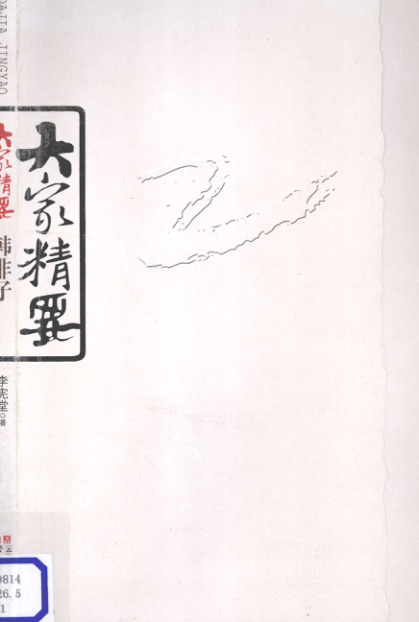 DAJIA JINGYAO
大家精要
大家精要
韩非子
李宪堂◎著
0814
26.5
1